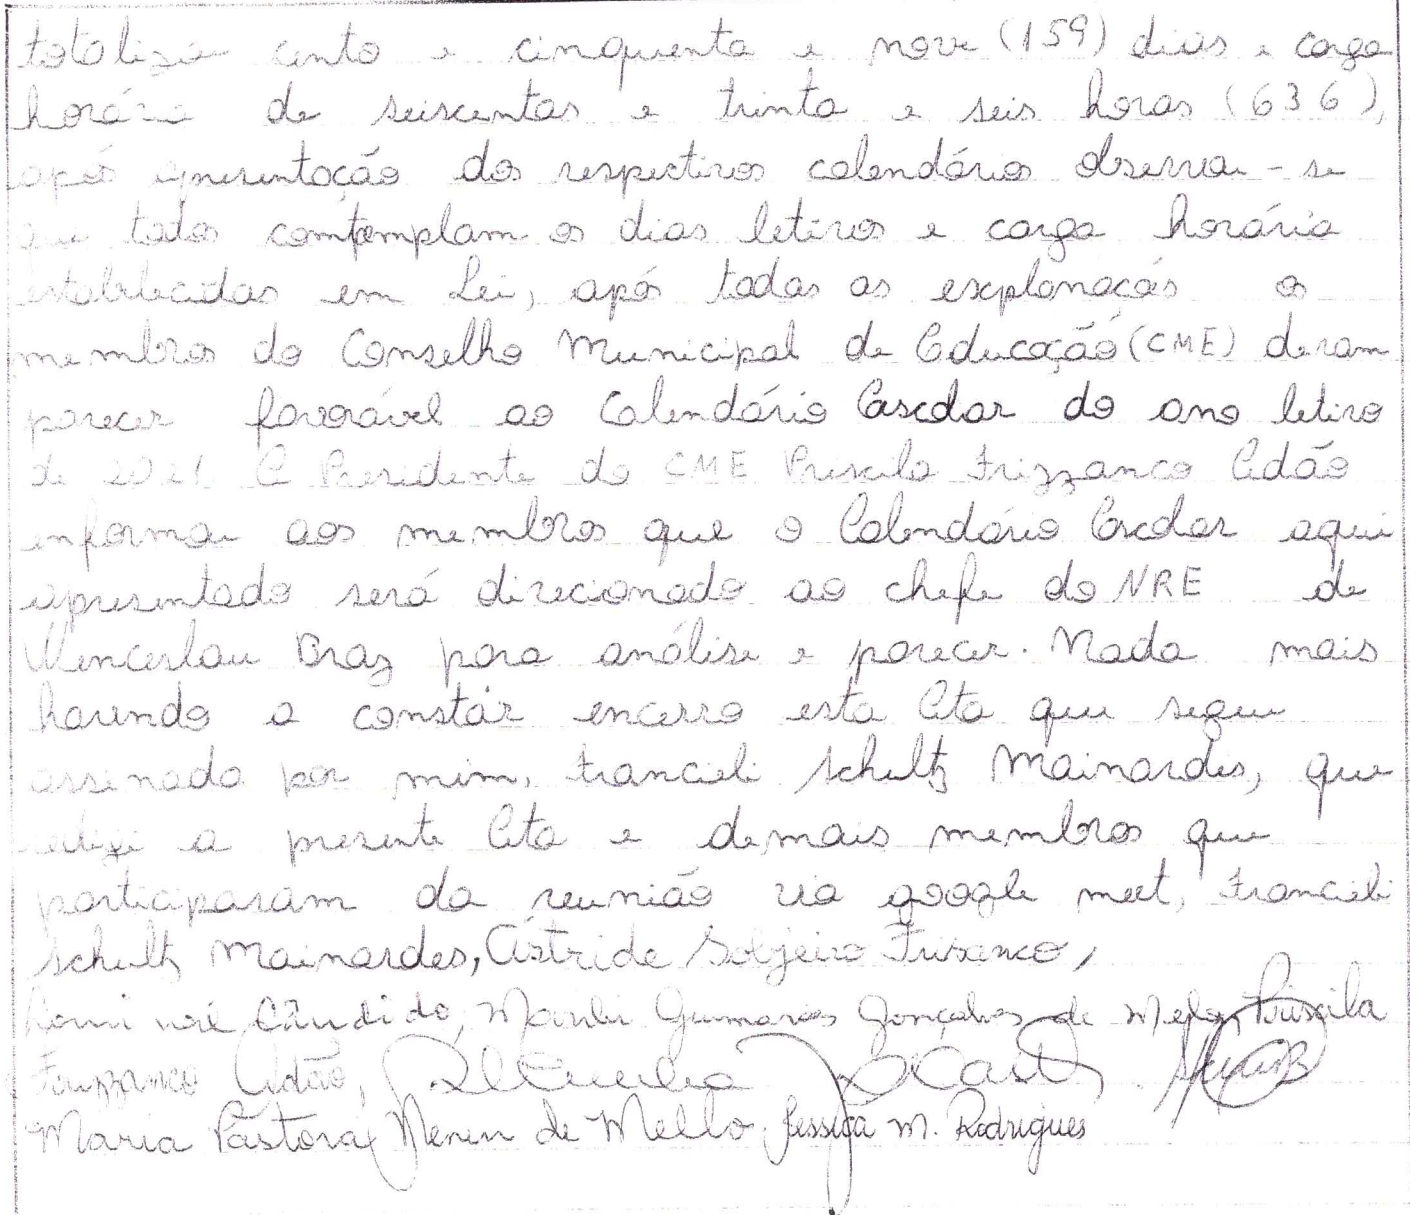 totaliza cento e cinquenta e nove (159) dias e carga
horária de seiscentas e trinta e seis horas (636),
após apresentação dos respectivos calendários observou-se
que todos comtemplam os dias letivos e carga horária
estabelecidas em Lei, após todas as explanações os
membros do Conselho Municipal de Educação (CME) deram
parecer favorável ao Calendário Escolar do ano letivo
de 2021. A Presidente do CME Priscila Frizzanco Adão
informou aos membros que o Calendário Escolar aqui
apresentado será direcionado ao chefe do NRE de
Wenceslau Braz para análise e parecer. Nada mais
havendo a constar encerro esta Ata que segue
assinada por mim, Francieli Schultz Mainardes, que
redigi a presente Ata e demais membros que
participaram da reunião via google meet, Francieli
Schultz Mainardes, Astride Frizanco,
Cândido, Guimarães Gonçalves de Melo, Priscila
Frizzanco Adão,
Maria Pastora Neren de Mello. Jessica M. Rodrigues